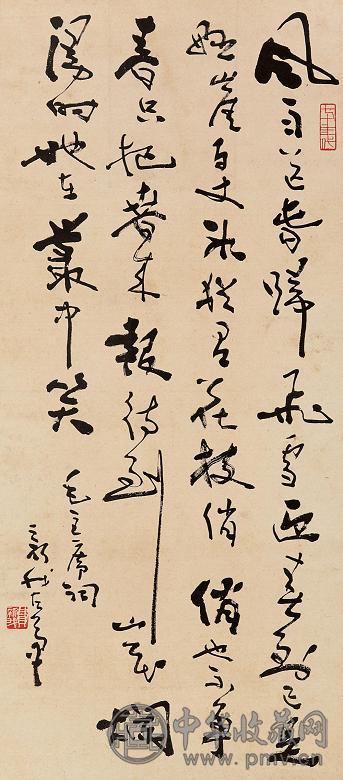 风雨送春歸飛雪迎春到已是
懸崖百丈冰犹有花枝俏俏也不争
春只把春来報待到山花爛
漫时她在叢中笑
毛主席词
新我左筆
中华收藏网
www.pmv.cn